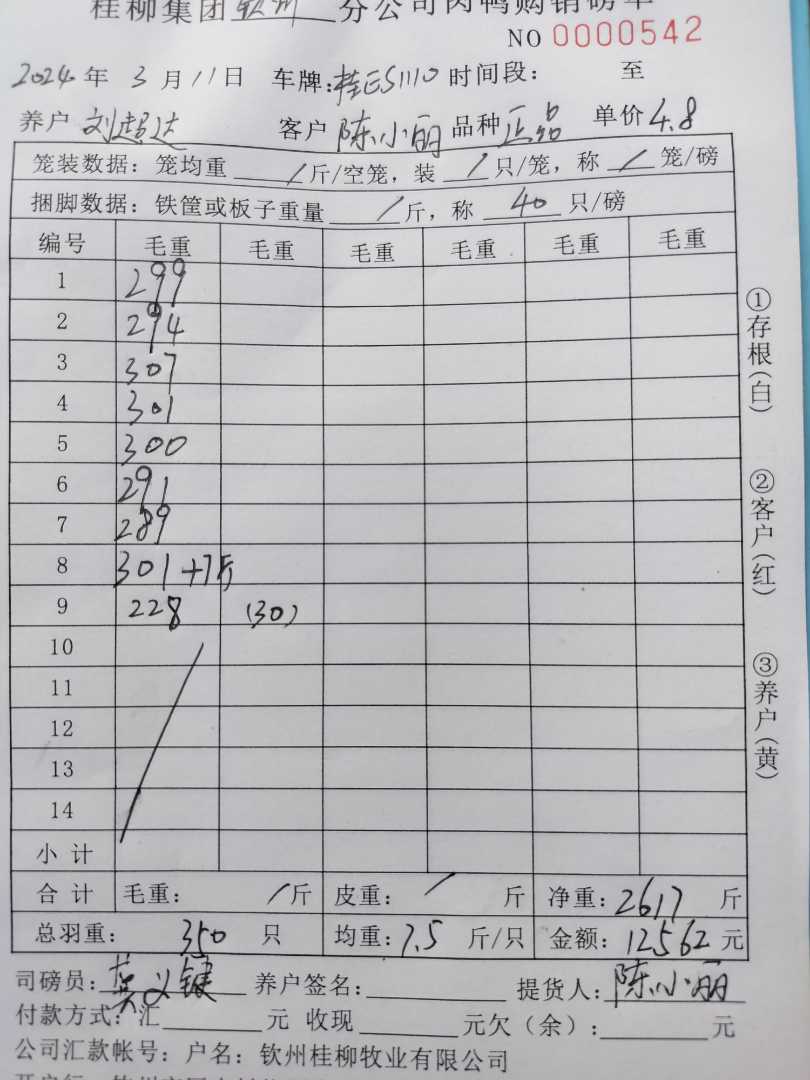 桂柳集团 钦州 分公司肉鸭购销磅单
NO 0000542
2024年 3月11日 车牌:桂ES1110 时间段: 至
养户 刘超达 客户 陈小丽 品种 正品 单价 4.8
笼装数据: 笼均重 / 斤/空笼, 装 / 只/笼, 称 / 笼/磅
捆脚数据: 铁筐或板子重量 / 斤, 称 40 只/磅
编号 毛重 毛重 毛重 毛重 毛重 毛重
1 299
2 294
3 307
4 301
5 300
6 291
7 289
8 301+7斤
9 228 (30)
10
11
12
13
14
小计
合计 毛重: / 斤 皮重: / 斤 净重: 2617 斤
总羽重: 350 只 均重: 7.5 斤/只 金额: 12562 元
司磅员: 义键 养户签名: 提货人: 陈小丽
付款方式: 汇 元 收现 元欠(余): 元
公司汇款帐号: 户名: 钦州桂柳牧业有限公司
开户行:
①存根(白)
②客户(红)
③养户(黄)